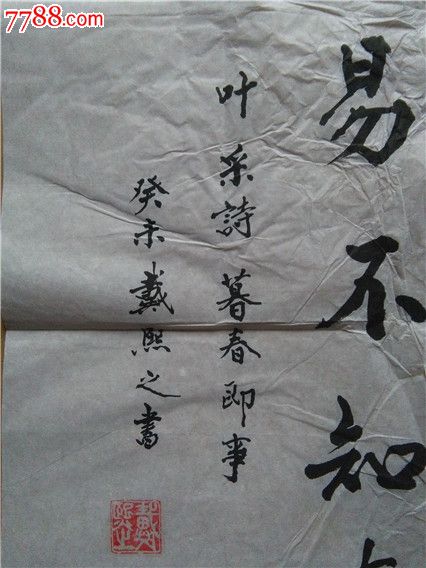 7788.com
易不知
叶采詩暮春即事
癸未戴熙之書